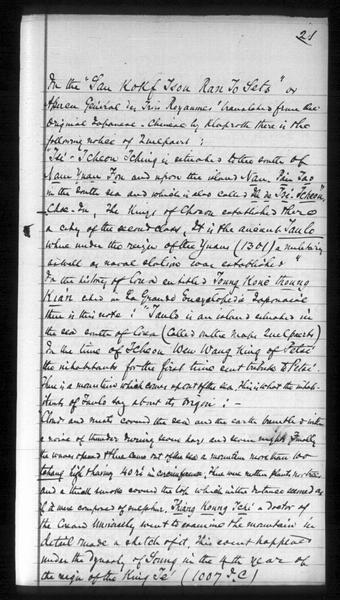 21
In the "San Kokf Tsou Ran To Sets" or
Aperçu Général des Trois Royaumes" translated from the
Original Japanese-Chinese by Klaproth there is the
following notice of Quelpart:
"Tsi-Tcheou Tching is situated to the south of
Nam Yuan Fou and upon the island Nam, Hai Tao
in the South sea and which is also called
The Kings of Chosen established there
a city of the second class, it is the ancient Taulo
where under the reign of the Yuans (1301) a military
as well as naval station was established"
In the history of Corea entitled Toung Koue Thoung
Kian cited in La Grande Encyclopedia Japonaise
there is this note: "Taulo is an island situated in
the sea south of Corea (Called on the maps Quelpaerts)
In the time of Tcheou Wen Wang King of Petsi
the inhabitants for the first time sent tribute to Petsi.
There is a mountain which comes up out of the sea. This is what the inhab-
itants of Taulo say about its origin: -
Clouds and mists covered the sea and the earth trembled with
a noise of thunder during seven days and seven nights. Finally
the waves opened & there came out of the sea a mountain more than 100
toises high & having 40 ri in circumference. There were neither plants nor trees
and a thick smoke covered the top which in the distance seemed as
if it were composed of sulphur. Thiang Koung Tchi a doctor of
the Grand University went to examine the mountain in
detail made a sketch of it, this event happened
under the dynasty of Soung in the 4th year of
the reign of the King Te (1007 J.C)